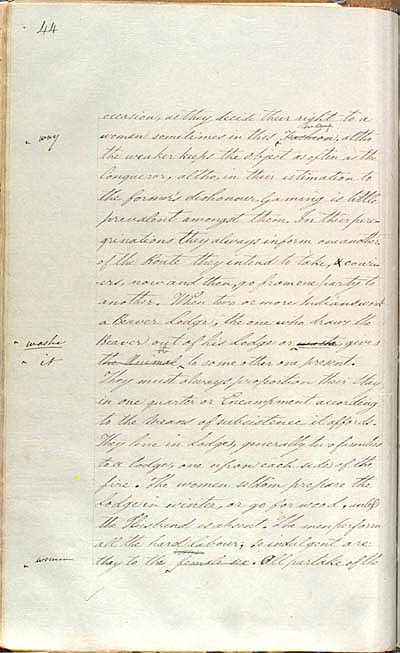 44
occasion, as they decide their right to a
woman sometimes in this Fashion, altho
way
the weaker keeps the object as often as the
Conqueror, altho, in their estimation to
the former's dishonour. Gaming is little
prevalent amongst them. In their pere-
grinations they always inform one another
of the Route they intend to take, & couri-
ers, now and then, go from one party to
another. When two or more Indians work
a Beaver Lodge, the one who draws the
Beaver out of his Lodge or washe, gives
washe
it
the Animal to some other one present.
They must always proportion their Stay
in one quarter or Encampment according
to the Means of subsistence it affords.
They live in Lodges, generally two families
to a Lodge, one upon each side of the
fire. The women seldom prepare the
Lodge in winter, or go for wood, unless
the Husband is absent. The men perform
all the hard labour; so indulgent are
they to the female sex. All partake of the
women